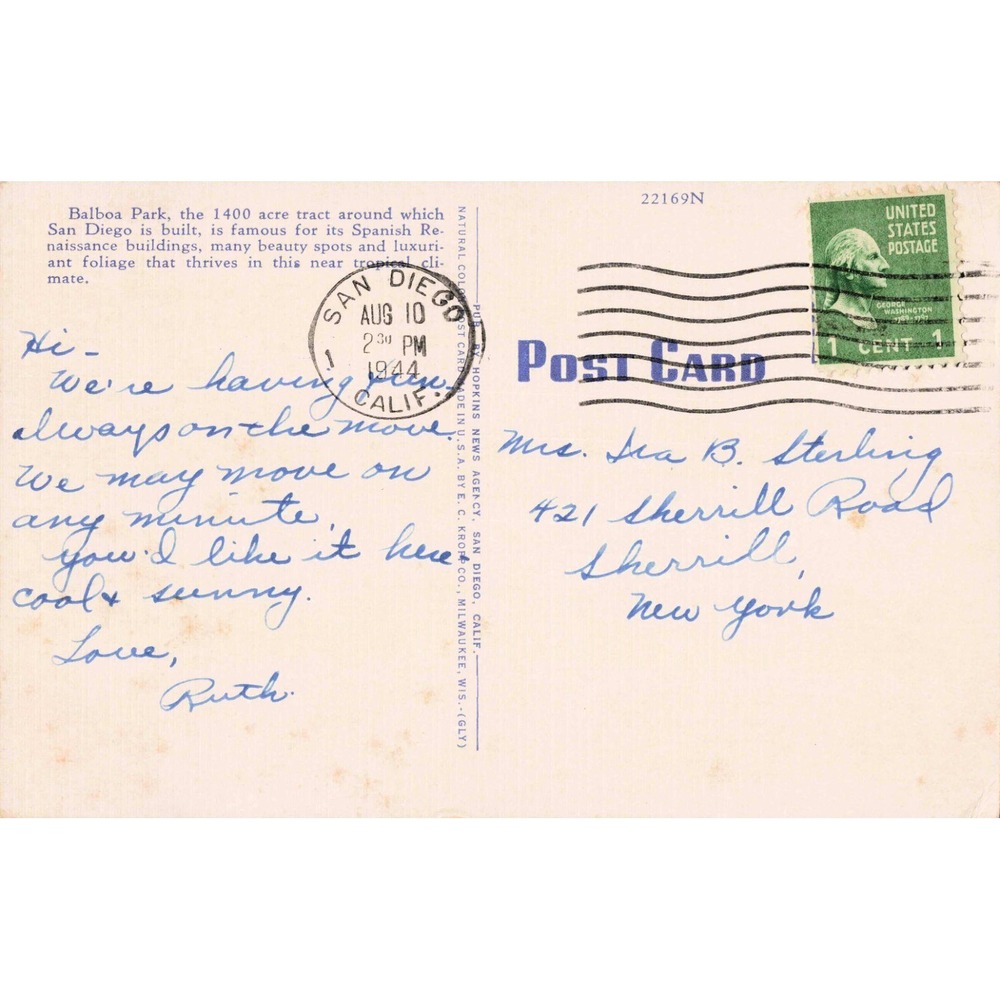 Balboa Park, the 1400 acre tract around which
San Diego is built, is famous for its Spanish Re-
naissance buildings, many beauty spots and luxuri-
ant foliage that thrives in this near tropical cli-
mate.
Hi-
We're having fun-
always on the move.
We may move on
any minute.
You'd like it here-
cool & sunny.
Love,
Ruth.
SAN DIEGO
AUG 10
2 30 PM
1944
1
CALIF.
PUB. BY HOPKINS NEWS AGENCY, SAN DIEGO, CALIF.
NATURAL COLOR POST CARD MADE IN U.S.A. BY E. C. KROPP CO., MILWAUKEE, WIS.-(GLY)
22169N
UNITED
STATES
POSTAGE
GEORGE
WASHINGTON
1 CENT 1
POST CARD
Mrs. B. Sterling
421 Sherrill Road
Sherrill,
New York